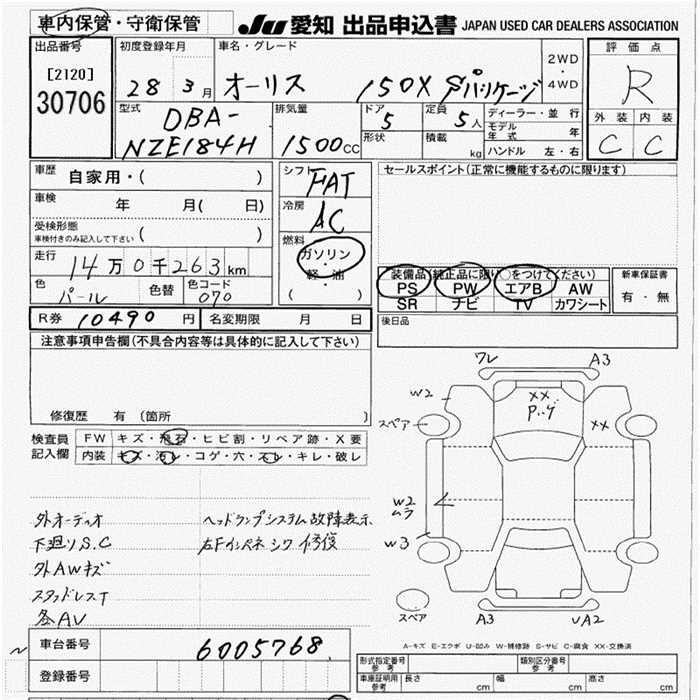 車内保管・守衛保管
JU 愛知 出品申込書 JAPAN USED CAR DEALERS ASSOCIATION
出品番号 [2120] 30706
初度登録年月 28 3月
車名・グレード オーリス 150X Sパッケージ
2WD・4WD
評価点 R
外装 内装
C C
型式 DBA-NZE184H
排気量 1500CC
ドア 5 形状
定員 5人 積載 kg
ディーラー・並行
モデル年式 年
ハンドル 左・右
車歴 自家用・( )
車検 年 月( 日)
受検形態
車検付きのみ記入して下さい ( )
走行 14万0千263km
色 パール 色替 色コード 070
シフト FAT
冷房 AC
燃料 ガソリン・軽・油
( )
セールスポイント(正常に機能するものに限ります)
装備品(純正品に限り○をつけてください)
PS PW エアB AW
SR ナビ TV カワシート
新車保証書 有・無
R券 10490円 名変期限 月 日
後日品
注意事項申告欄(不具合内容等は具体的に記入して下さい)
修復歴 有 (箇所 )
検査員記入欄
FW キズ・飛石・ヒビ割・リペア跡・X要
内装 キズ・汚レ・コゲ・穴・スレ・キレ・破レ
外オーディオ
下廻りS.C
外AWキズ
スタッドレスT
ヘッドランプシステム故障表示
左Fインパネ シワ 修復
ワレ A3
W2
XX
XX
スペア
W2
ムラ
W3
スペア
A3 A2
A-キズ E-エクボ U-凹み W-補修跡 S-サビ C-腐食 XX-交換済
車台番号 6005768
登録番号
形式指定番号 参考 類別区分番号 参考
車庫証明用 参考 長さ cm 幅 cm 高さ cm